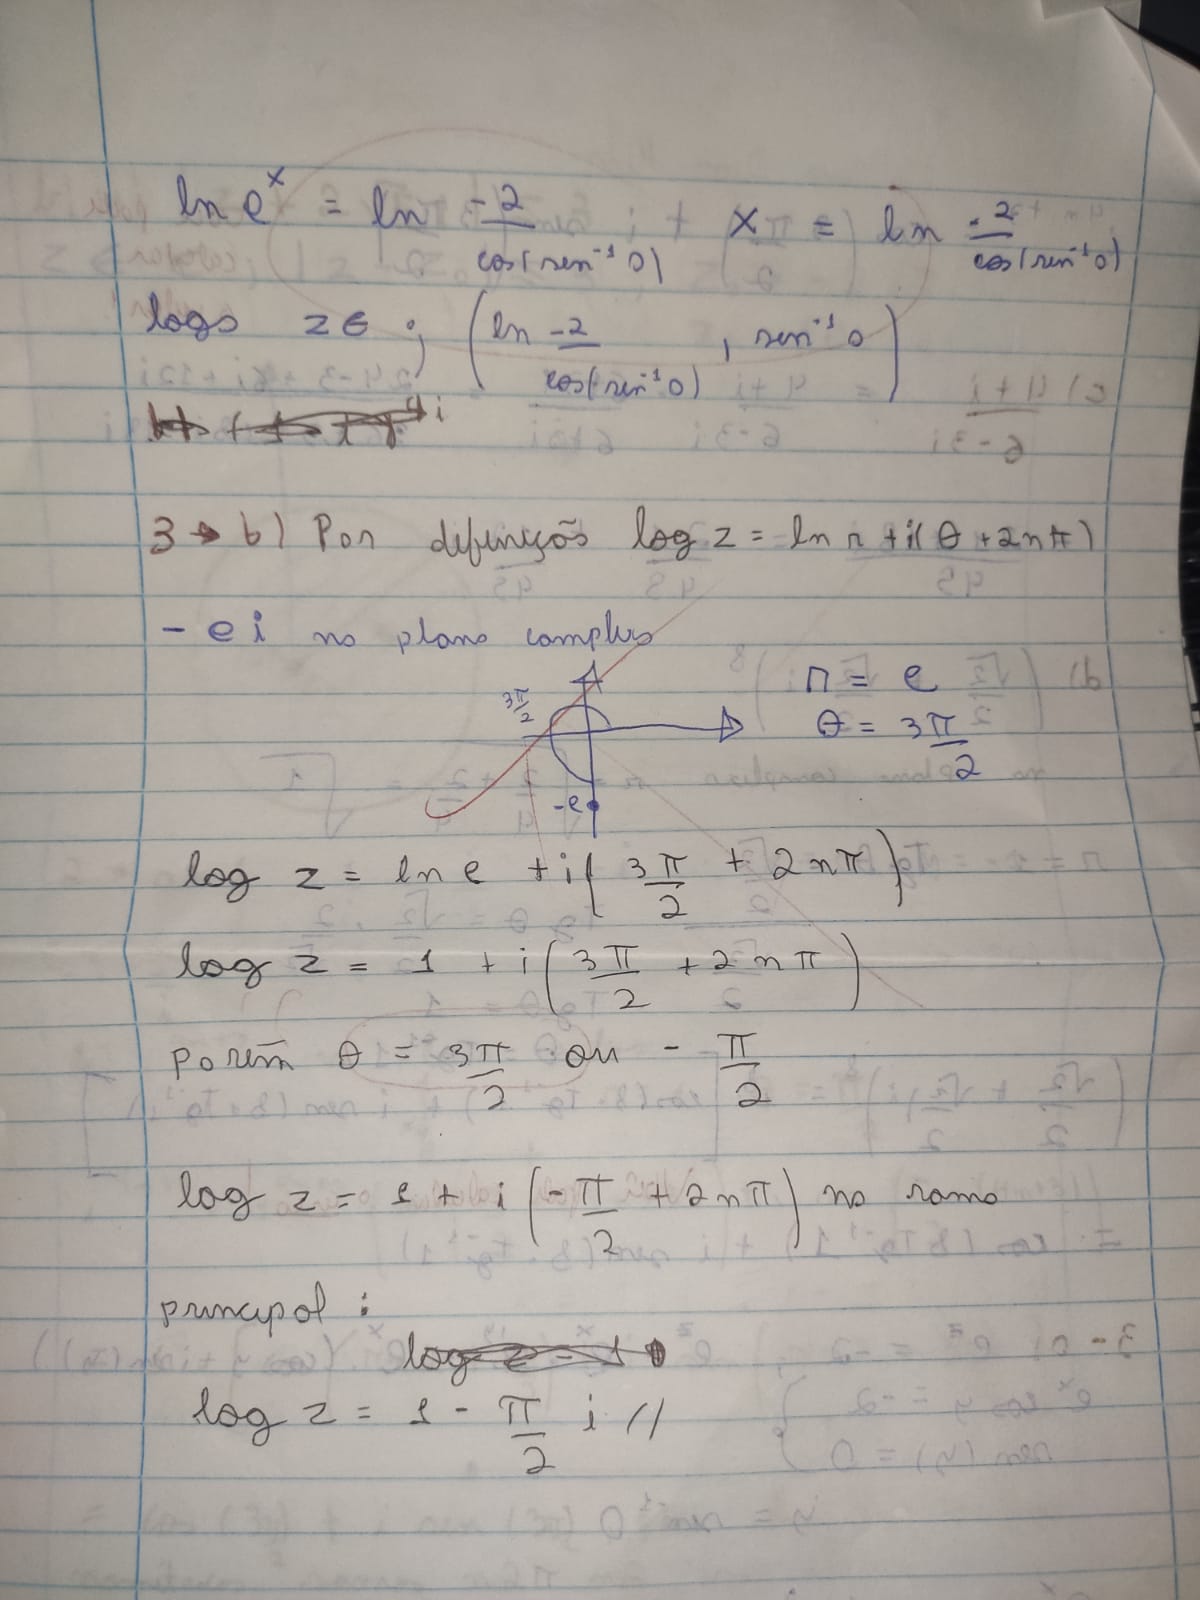 ln e^x = ln -2/cos(sen^-1 0) + x = ln -2/cos(sen^-1 0)
logo z ∈ ; (ln -2/cos(sen^-1 0), sen^-1 0)
3 → b) Por definição log z = ln r + i(θ + 2nπ)
- e i no plano complexo
r = e
3π/2
θ = 3π/2
-e
log z = ln e + i(3π/2 + 2nπ)
log z = 1 + i(3π/2 + 2nπ)
porém θ = 3π/2 ou - π/2
log z = 1 + i(-π/2 + 2nπ) no ramo
principal :
log z = 1 - π/2 i //